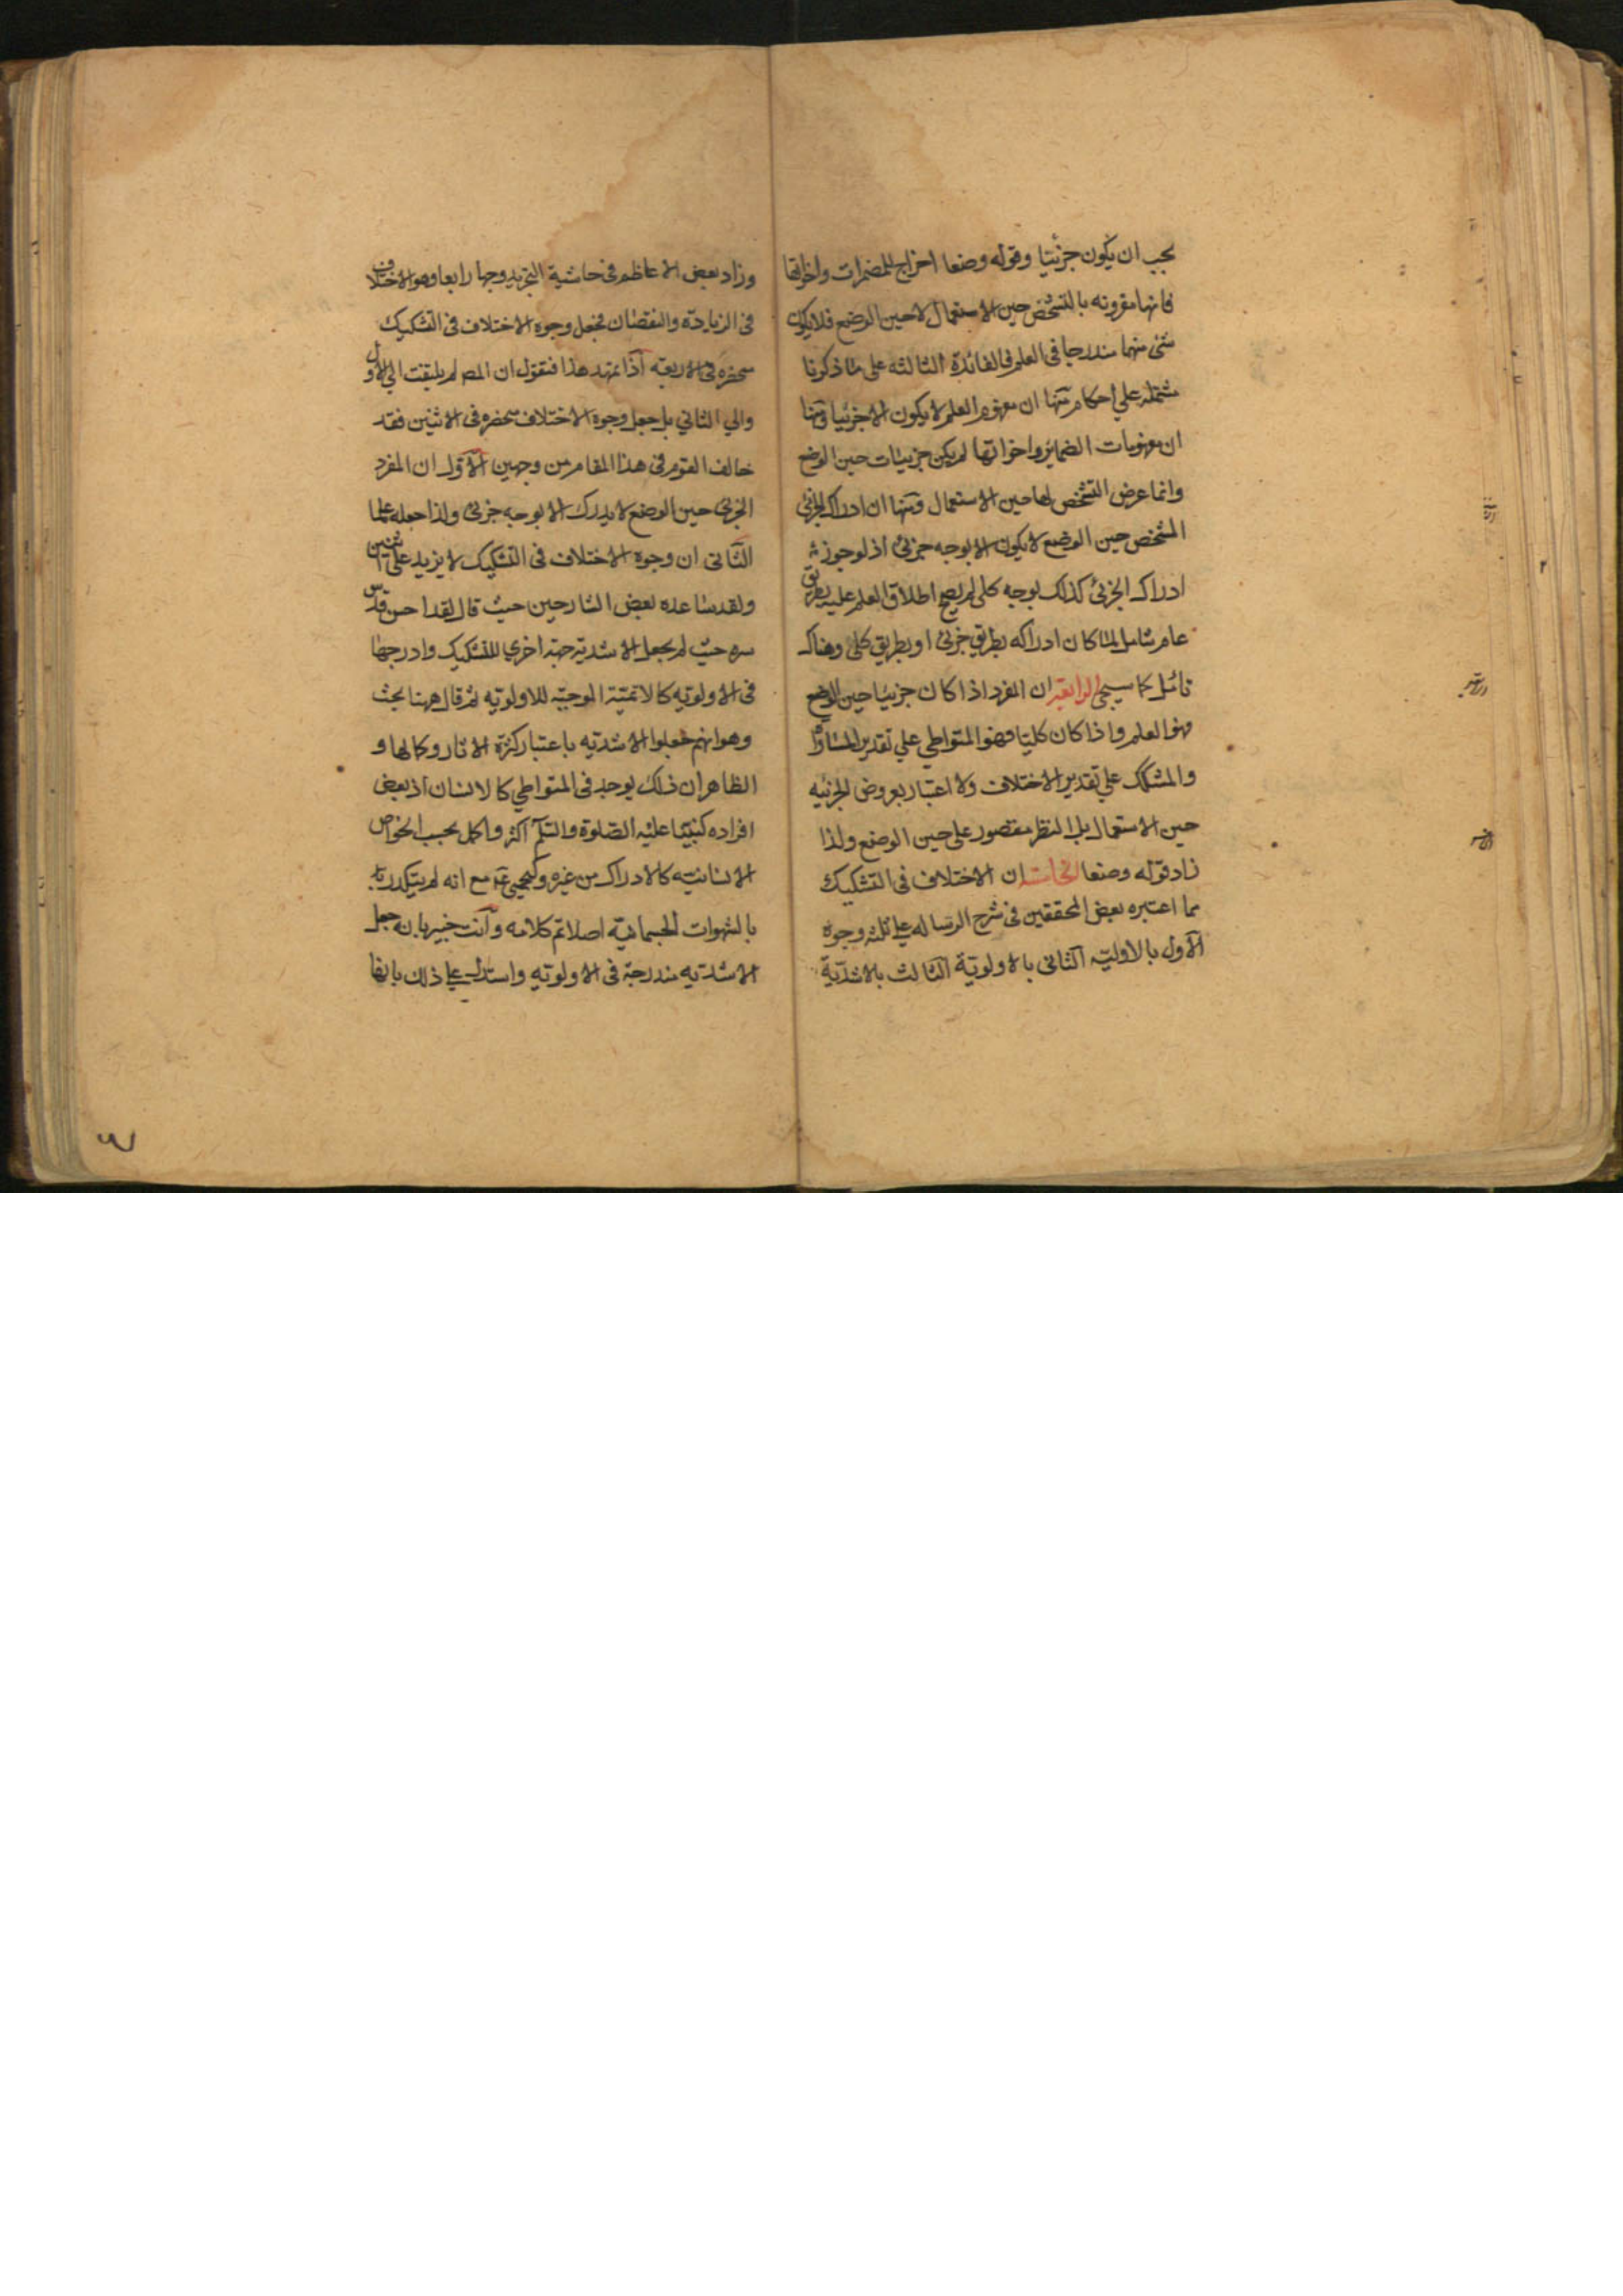 يجب ان يكون جزئيا وقوله وضعا اخراج للمضمرات واخواتها
فانها مقرونه بالتشخص حين الاستعمال لا حين الوضع فلا يكون
شئ منهما مندرجا في العلم فالفائدة الثالثه على ما ذكرنا
مشتمله علي احكام منها ان مفهوم العلم لا يكون الا جزئيا ومنها
ان مفهومات الضمائر واخواتها لم يكن جزئيات حين الوضع
وانما عرض التشخص لها حين الاستعمال ومنها ان ادراك الجزئي
المشخص حين الوضع لا يكون الا بوجه جزئي اذ لو جوز
ادراك الجزئي كذلك بوجه كلي لم يصح اطلاق العلم عليه بطريق
عام شامل لما كان ادراكه بطريق جزئي او بطريق كلي وهناك
تامل كما سيجئ الرابعة ان المفرد اذا كان جزئيا حين الوضع
فهو العلم واذا كان كليا فهو المتواطي علي تقدير المساواة
والمشكك علي تقدير الاختلاف ولا اعتبار بعروض الجزئيه
حين الاستعمال بل النظر مقصور على حين الوضع ولذا
زاد قوله وضعا الخامسة ان الاختلاف في التشكيك
مما اعتبره بعض المحققين في شرح الرساله علي ثلثه وجوه
الاول بالاوليه الثاني بالاولوية الثالث بالاشدية
وزاد بعض الاعاظم في حاشية التجريد وجها رابعا وهو الاختلاف
في الزيادة والنقصان فجعل وجوه الاختلاف في التشكيك
منحصره في الاربعة اذا تمهد هذا فنقول ان المص لم يلتفت الي الاول
والي الثاني بل جعل وجوه الاختلاف منحصره في الاثنين فقد
خالف القوم في هذا المقام من وجهين الاول ان المفرد
الجزئي حين الوضع لا يدرك الا بوجه جزئي ولذا جعله علما
الثاني ان وجوه الاختلاف في التشكيك لا يزيد على اثنين
ولقد ساعده بعض الشارحين حيث قال لقد احسن قدس
سره حيث لم يجعل الاشدية جهة اخري للتشكيك وادرجها
في الاولويه كالاتمية الموجبه للاولويه ثم قال ههنا بحث
وهو انهم جعلوا الاشديه باعتبار كثرة الاثار وكمالها و
الظاهر ان ذلك يوجد في المتواطي كالانسان اذ بعض
افراده كنبينا عليه الصلوة والسلم اكثر واكمل بحسب الخواص
الانسانيه كالادراك من غيره وكيحيى ع مع انه لم يتكدر
بالشهوات الجسمانية اصلا تم كلامه وانت خبير بانه جعل
الاشديه مندرجة في الاولويه واستدل علي ذلك